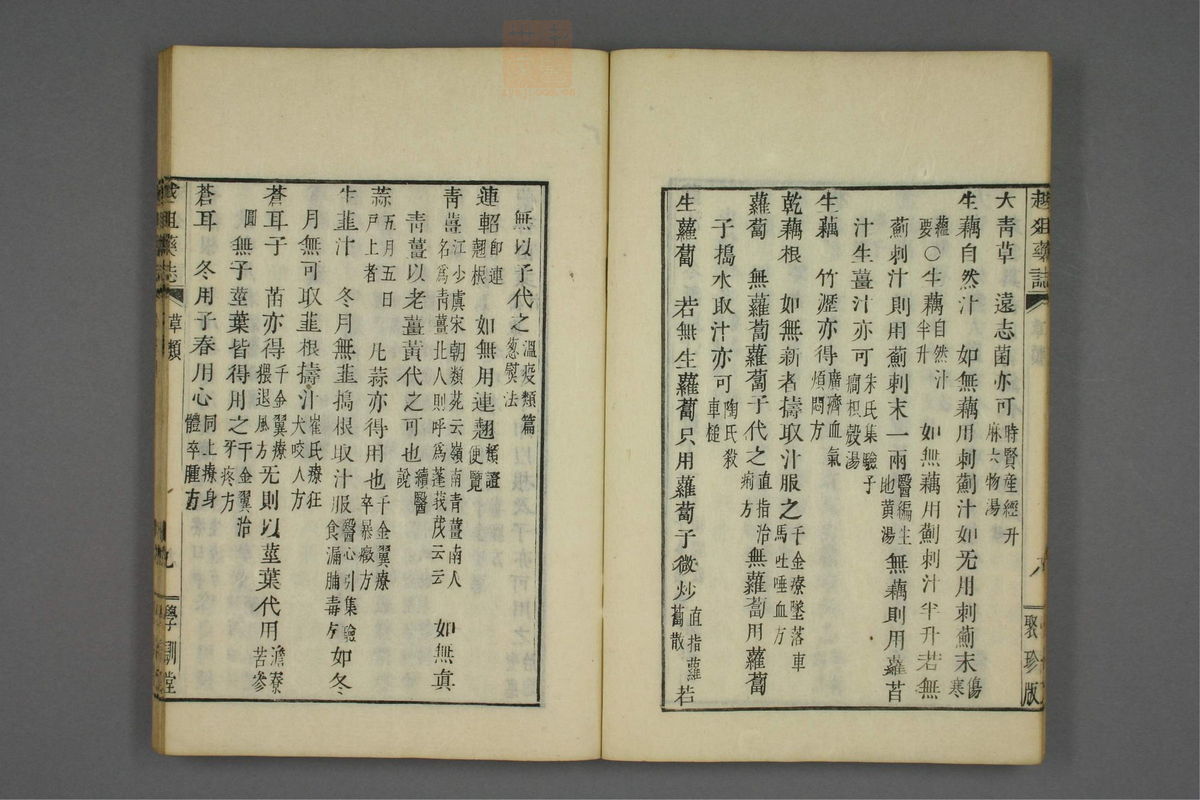 越俎藥誌
聚珍版
大青草　遠志菌亦可時賢産經升麻六物湯
生藕自然汁　如無藕用刺薊汁如无用刺薊末傷寒
蘊要○生藕自然汁半升　如無藕用薊刺汁半升若無
薊刺汁則用薊刺末一兩醫編生地黄湯無藕則用蘿苜
汁生薑汁亦可朱氏集驗子癎根殼湯
生藕　竹瀝亦得廣濟血氣煩悶方
乾藕根　如無新者擣取汁服之千金療墜落車馬吐唾血方
蘿蔔　無蘿蔔蘿蔔子代之直指治痢方無蘿蔔用蘿蔔
子搗水取汁亦可陶氏殺車槌
生蘿蔔　若無生蘿蔔只用蘿蔔子微炒直指蘿蔔散若
無以子代之溫疫類篇葱熨法
連軺即連翹根　如無用連翹類證便覽
青薑江少虞宋朝類苑云嶺南青薑南人名爲青薑北人則呼爲蓬莪茂云云　如無真
青薑以老薑黄代之可也續醫說
蒜五月五日戸上者　凡蒜亦得用也千金翼療卒暴癥方
生韮汁　冬月無韮搗根取汁服醫心引集驗食漏脯毒方如冬
月無可取韮根擣汁崔氏療狂犬咬人方
蒼耳子　苗亦得千金翼療猥退風方无則以莖葉代用澹寮苦參
圓無子莖葉皆得用之千金翼治牙疼方
蒼耳　冬用子春用心同上療身體卒腫方
越俎藥誌
草類
九
學訓堂